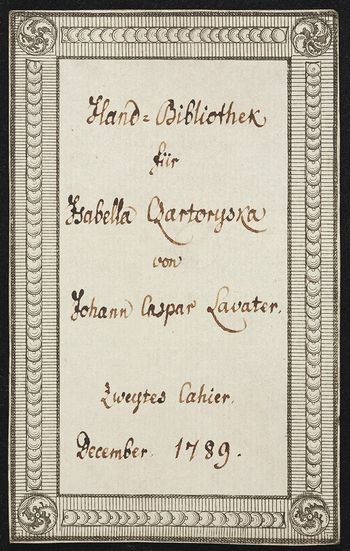 Hand=Bibliothek
für
Isabella Czartoryska
von
Johann Caspar Lavater.
Zweytes Cahier.
December. 1789.